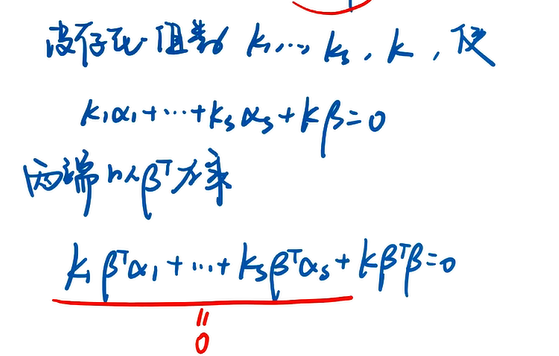 设存在组数 k₁,…, kₛ, k, 使
k₁α₁+…+kₛαₛ+kβ=0
两端以βᵀ左乘
k₁βᵀα₁+…+kₛβᵀαₛ+kβᵀβ=0
=
0